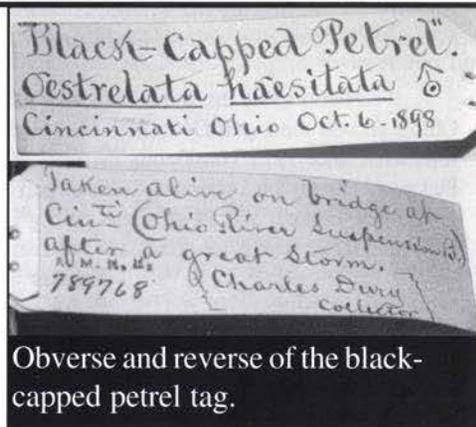 "Black-Capped Petrel".
Oestrelata haesitata ♂
Cincinnati Ohio Oct. 6-1898
Taken alive on bridge at
Cin.ti (Ohio River Suspension B.)
after a great storm.
A.M.N.H.
789768
Charles Dury
Collector
Obverse and reverse of the black-
capped petrel tag.